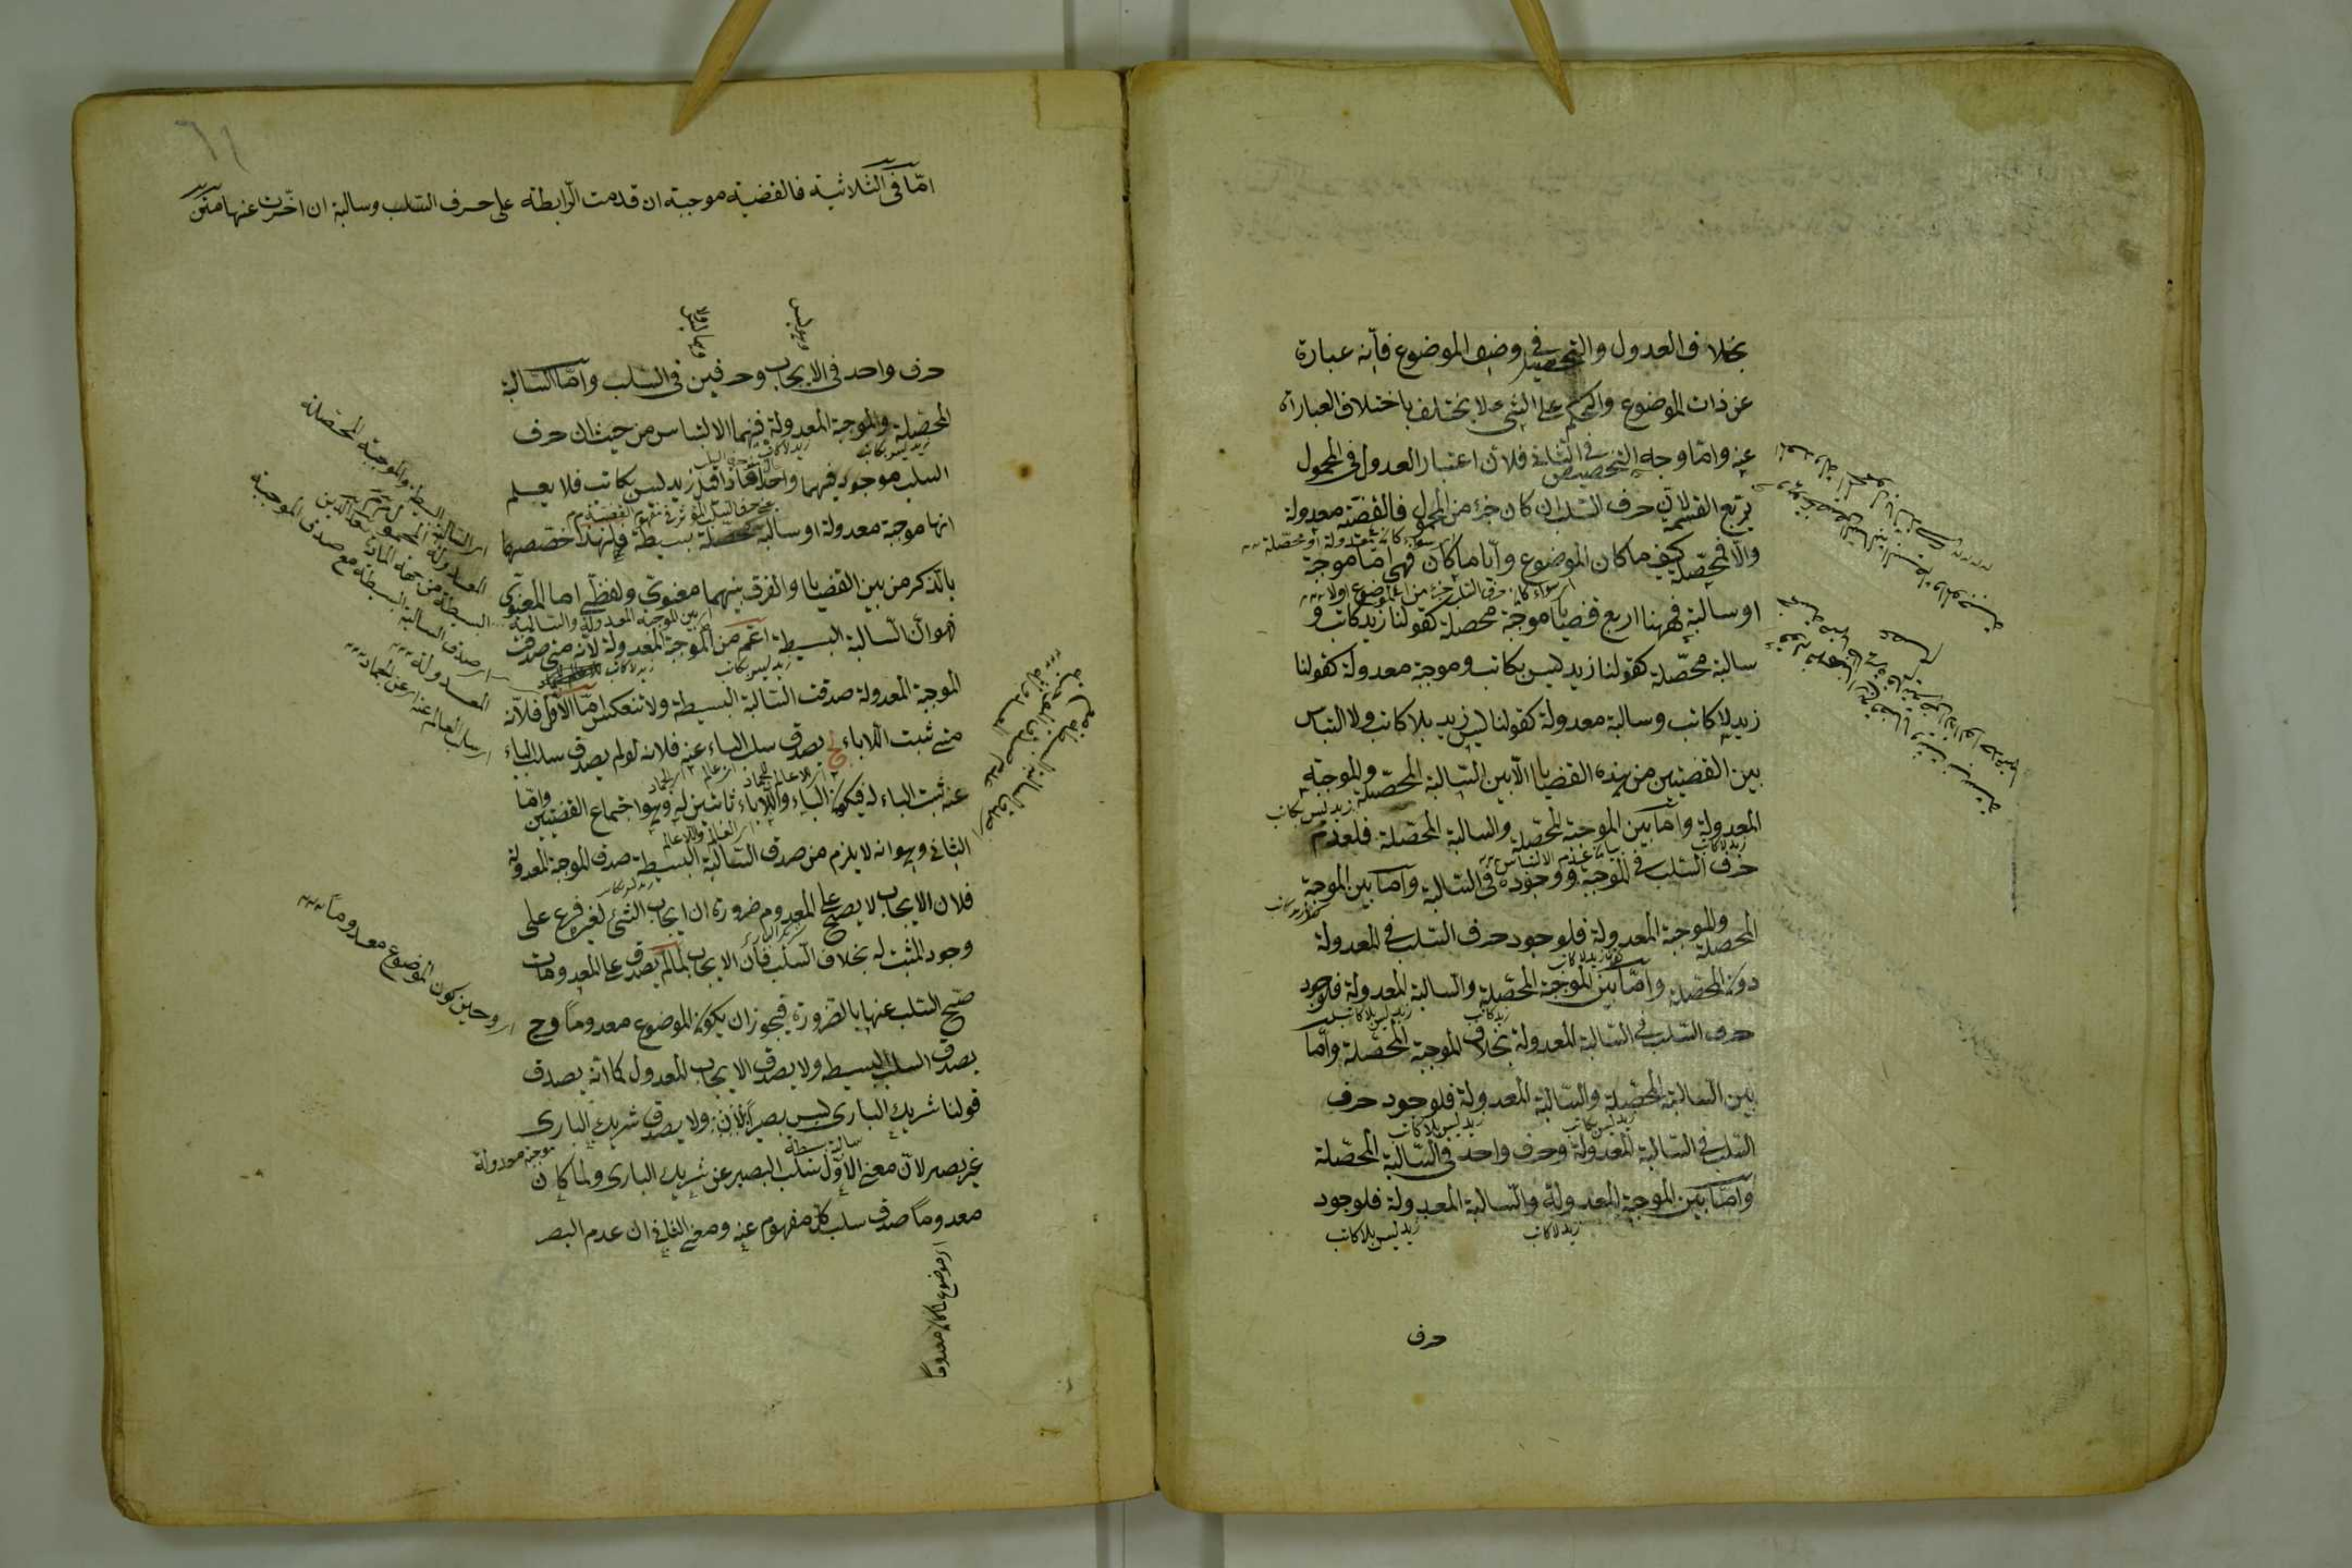 بخلاف العدول والتحصيل في وصف الموضوع فانه عبارة
عن ذات الموضوع والحكم على الشئ لا يختلف باختلاف العبارات
عنه واما وجه التخصيص في الثاني فلان اعتبار العدول في المحمول
يربع القسمة لان حرف السلب ان كان جزء من المحمول فالقضية معدولة
والا فمحصلة كيف ما كان الموضوع وايا ما كان فهي اما موجبة
او سالبة فههنا اربع قضايا موجبة محصلة كقولنا زيد كاتب و
سالبة محصلة كقولنا زيد ليس بكاتب وموجبة معدولة كقولنا
زيد لا كاتب وسالبة معدولة كقولنا ليس زيد بلا كاتب ولا التباس
بين القضيتين من هذه القضايا الا بين السالبة المحصلة والموجبة
زيد ليس بكاتب
المعدولة واما بين الموجبة المحصلة والسالبة المحصلة فلعدم
زيد لا كاتب
حرف السلب في الموجبة ووجوده في السالبة واما بين الموجبة
المحصلة والموجبة المعدولة فلوجود حرف السلب في المعدولة
دون المحصلة واما بين الموجبة المحصلة والسالبة المعدولة فلوجود
زيد كاتب زيد ليس بلا كاتب
حرف السلب في السالبة المعدولة بخلاف الموجبة المحصلة واما
بين السالبة المحصلة والسالبة المعدولة فلوجود حرف
زيد ليس بكاتب زيد ليس بلا كاتب
السلب في السالبة المعدولة وحرف واحد في السالبة المحصلة
واما بين الموجبة المعدولة والسالبة المعدولة فلوجود
زيد لا كاتب زيد ليس بلا كاتب
حرف
٦١
اما في الثلاثية فالقضية موجبة ان قدمت الرابطة على حرف السلب وسالبة ان اخرت عنها متن
حرف واحد في الايجاب وحرفين في السلب واما السالبة
المحصلة والموجبة المعدولة فبينهما الالتباس من حيث ان حرف
زيد ليس بكاتب زيد لا كاتب
السلب موجود فيهما واحدا فاذا قيل زيد ليس بكاتب فلا يعلم
انها موجبة معدولة او سالبة محصلة بسيطة فلهذا خصصهما
بالذكر من بين القضايا والفرق بينهما معنوي ولفظي اما المعنوي
اي بين الموجبة المعدولة والسالبة
فهو ان السالبة البسيطة اعم من الموجبة المعدولة لانه متى صدقت
زيد ليس بكاتب زيد لا كاتب
الموجبة المعدولة صدقت السالبة البسيطة ولا تنعكس اما الاول فلانه
متى ثبت اللاباء لج يصدق سلب الباء عنه فلانه لو لم يصدق سلب الباء
عنه ثبت الباء له فيكون الباء واللاباء ثابتين له وهو اجتماع النقيضين واما
الثاني وهو انه لا يلزم من صدق السالبة البسيطة صدق الموجبة المعدولة
فلان الايجاب لا يصح على المعدوم ضرورة ان ايجاب الشئ لغيره فرع على
وجود المثبت له بخلاف السلب فان الايجاب لما لم يصدق على المعدومات
صح السلب عنها بالضرورة فيجوز ان يكون الموضوع معدوما وح
يصدق السلب البسيط ولا يصدق الايجاب المعدول كما انه يصدق
قولنا شريك الباري ليس ببصير ولا يصدق شريك الباري
سالبة بسيطة
غير بصير لان معنى الاول سلب البصير عن شريك الباري ولما كان
موجبة معدولة
معدوما صدق سلب كل مفهوم عنه ومعنى الثاني ان عدم البصر
اي الموضوع لما كان معدوما
اي صدق السالبة البسيطة مع صدق الموجبة
المعدولة
اي سلب العالم عنه اي عن الجماد
اي وحين كون الموضوع معدوما